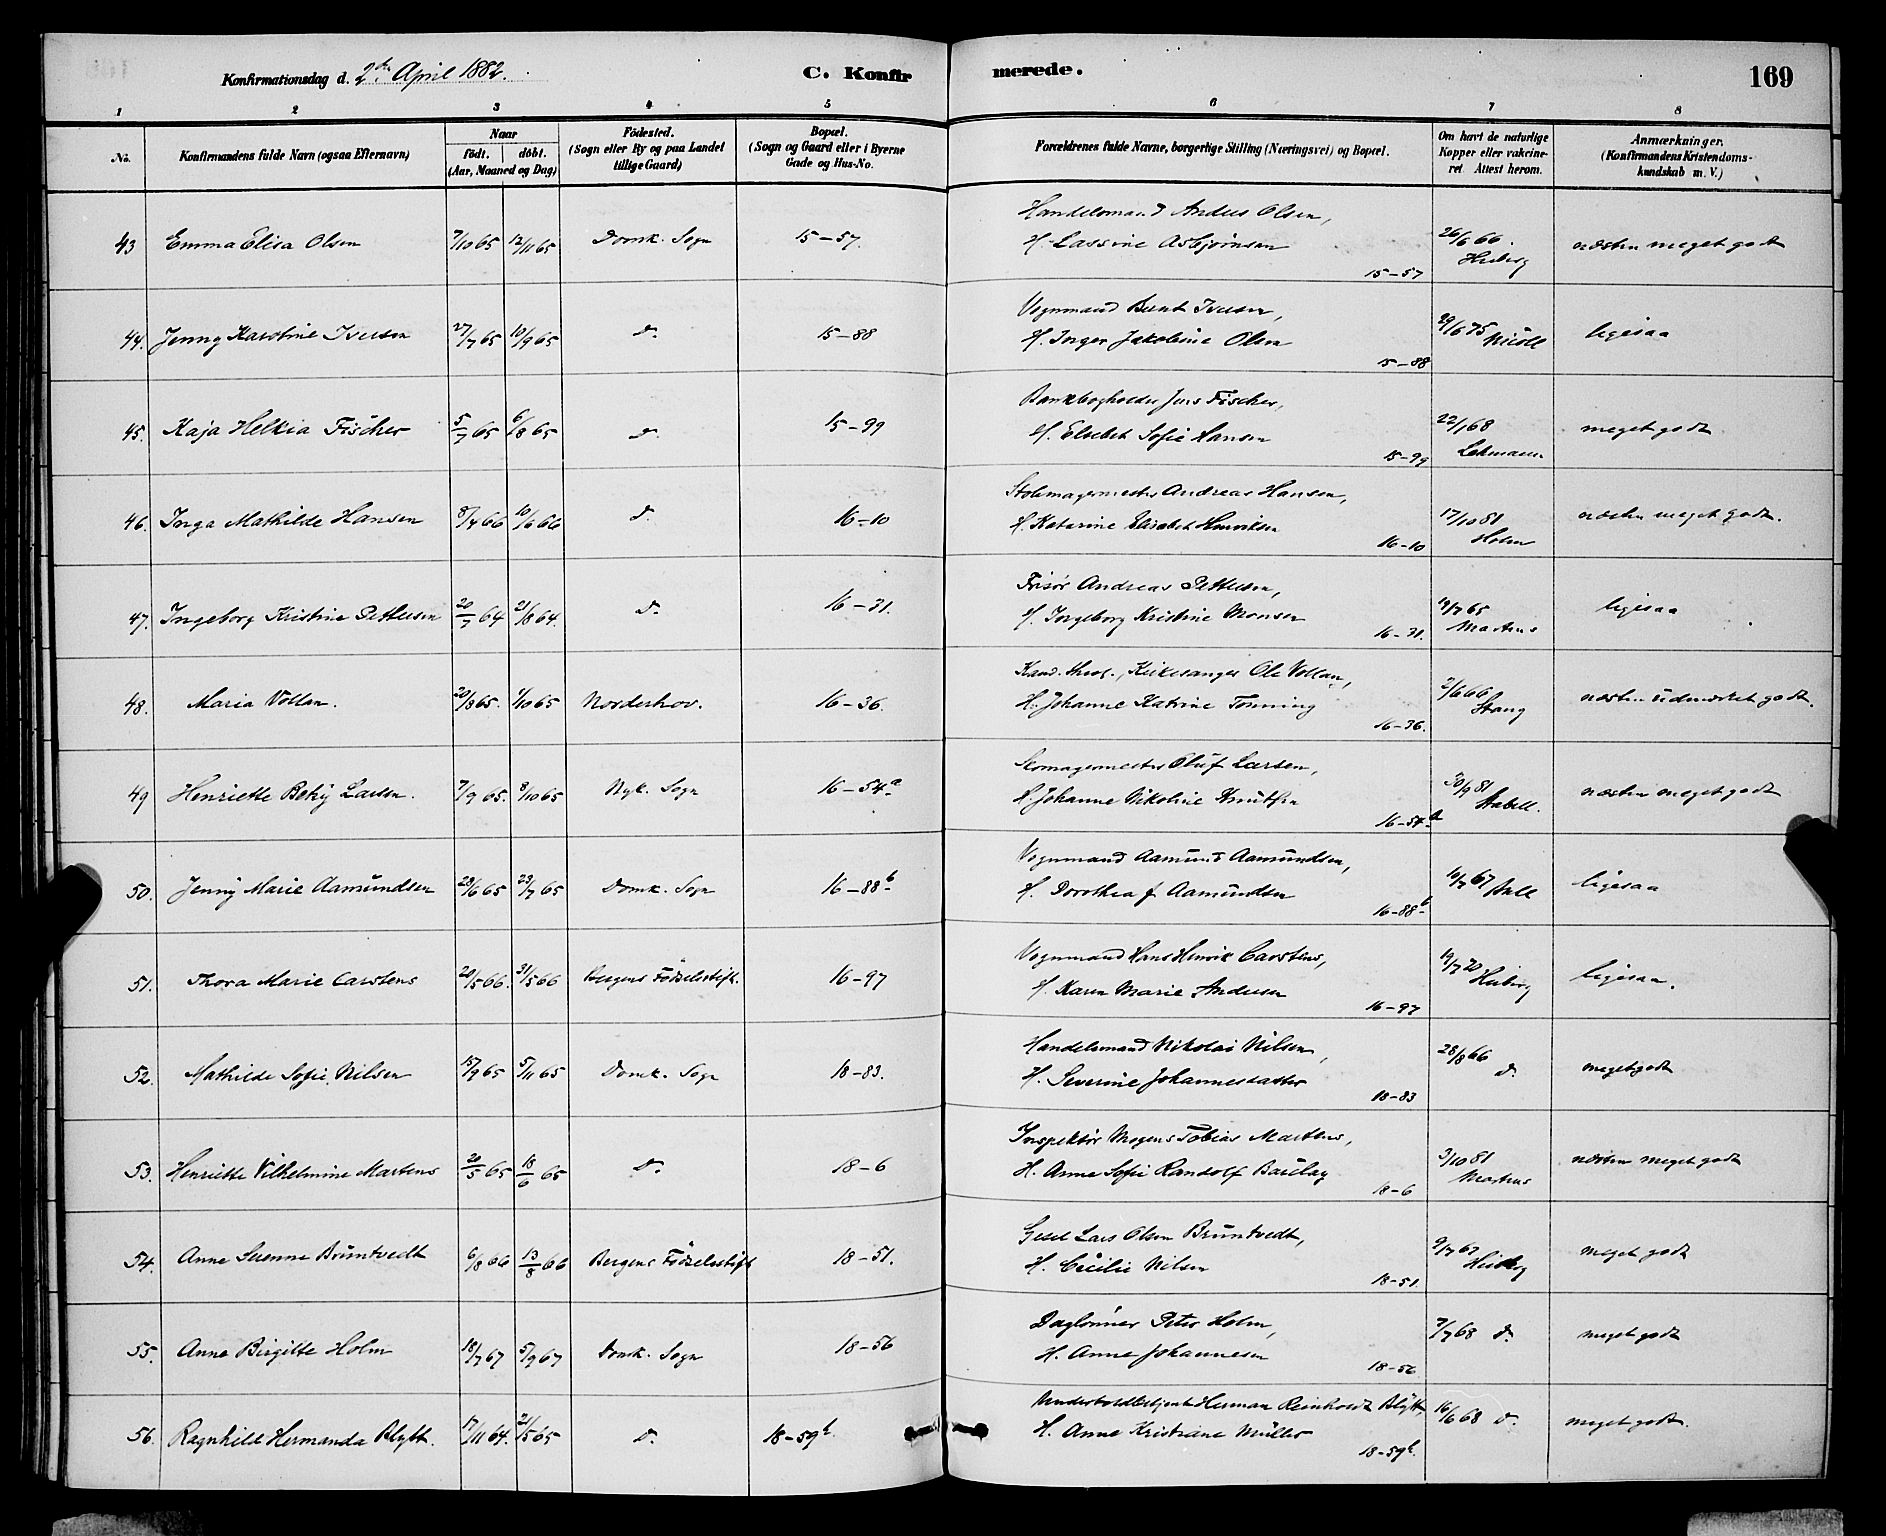 Konfirmationsdag d. 2den April 1882. C. Konfirmerede. 169
1 2 3 4 5 6 7 8
No. Konfirmandens fulde Navn (ogsaa Efternavn) Naar födt. döbt. (Aar, Maaned og Dag) Födested. (Sogn eller By og paa Landet tillige Gaard) Bopæl. (Sogn og Gaard eller i Byerne Gade og Hus-No. Forældrenes fulde Navne, borgerlige Stilling (Næringsvei) og Bopæl. Om havt de naturlige Kopper eller vakcineret Attest herom. Anmærkninger. (Konfirmandens Kristendomskundskab m. V.)
43 Emma Elisa Olsen 7/10 65 12/11 65 Domk. Sogn 15-57. Handelsmand Anders Olsen,
H. Lassine Asbjørnsen 15-57 26/6 66. Heiberg næsten meget godt
44. Jenny Karoline Iversen 27/7 65 10/9 65 do 15-88 Vognmand Bernt Iversen,
H. Inger Jakobine Olsen 15-88 29/6 75 Nicoll ligesaa
45. Kaja Helkia Fischer 5/7 65 6/8 65 do 15-99 Bankbogholder Jens Fischer,
H. Elsebet Sofie Hansen 15-99 22/1 68 Lehmann meget godt
46. Inga Mathilde Hansen 8/4 66 10/6 66 do 16-10 Stolemagermester Andreas Hansen,
H. Katarine Elisabet Henriksen 16-10 17/10 81 Holm næsten meget godt.
47. Ingeborg Kristine Pettersen 20/7 64 21/8 64. do 16-31. Frisør Andreas Pettersen,
H. Ingeborg Kristine Monsen 16-31. 19/7 65 Martens ligesaa
48. Maria Vollan. 20/8 65. 1/10 65 Norderhov. 16-36. Kand. theol., Kirkesanger Ole Vollan,
H. Johanne Katrine Tønning 16-36. 2/6 66 Stang næsten udmærket godt.
49 Henriette Betzy Larsen. 7/9 65. 8/10 65 Nyk. Sogn 16-54a Skomagermester Oluf Larsen,
H. Johanne Nikoline Knutsen 16-54a 30/9 81 Stabell. næsten meget godt
50. Jenny Marie Aamundsen 28/6 65 23/7 65 Domk. Sogn 16-88b Vognmand Aamund Aamundsen,
H. Dorothea f. Aamundsen 16-88b 10/7 67 ligesaa
51. Thora Marie Carstens 20/5 66. 31/5 66 Bergens Födselsstift. 16-97 Vognmand Hans Henrik Carstens,
H. Karen Marie Andersen 16-97 19/7 70 Heiberg ligesaa.
52. Mathilde Sofie Nilsen 15/9 65 5/11 65 Domk. Sogn 18-83. Handelsmand Nikolai Nilsen,
H. Severine Johannesdatter 18-83 28/8 66 do meget godt
53. Henriette Vilhelmine Martens 20/5 65 18/6 65 do 18-6 Inspektör Mogens Tobias Martens,
H. Anne Sofie Randolf Barclay 18-6 3/10 81 Martens næsten meget godt
54. Anne Serenne Bruntvedt 6/8 66 13/8 66 Bergens Födselsstift 18-51. Gesel Lars Olsen Bruntvedt,
H. Cecilie Nilsen 18-51. 9/7 67 Heiberg meget godt
55. Anne Birgitte Holm 18/7 67 5/9 67 Domk. Sogn 18-56 Daglönner Peter Holm,
H. Anne Johannesen 18-56 7/7 68 do meget godt
56. Ragnhild Hermanda Blytt. 17/11 64. 21/5 65 do 18-59b Undertoldbetjent Herman Reinholdt Blytt,
H. Anne Kristiane Müller 18-59b. 16/6 68 do meget godt.